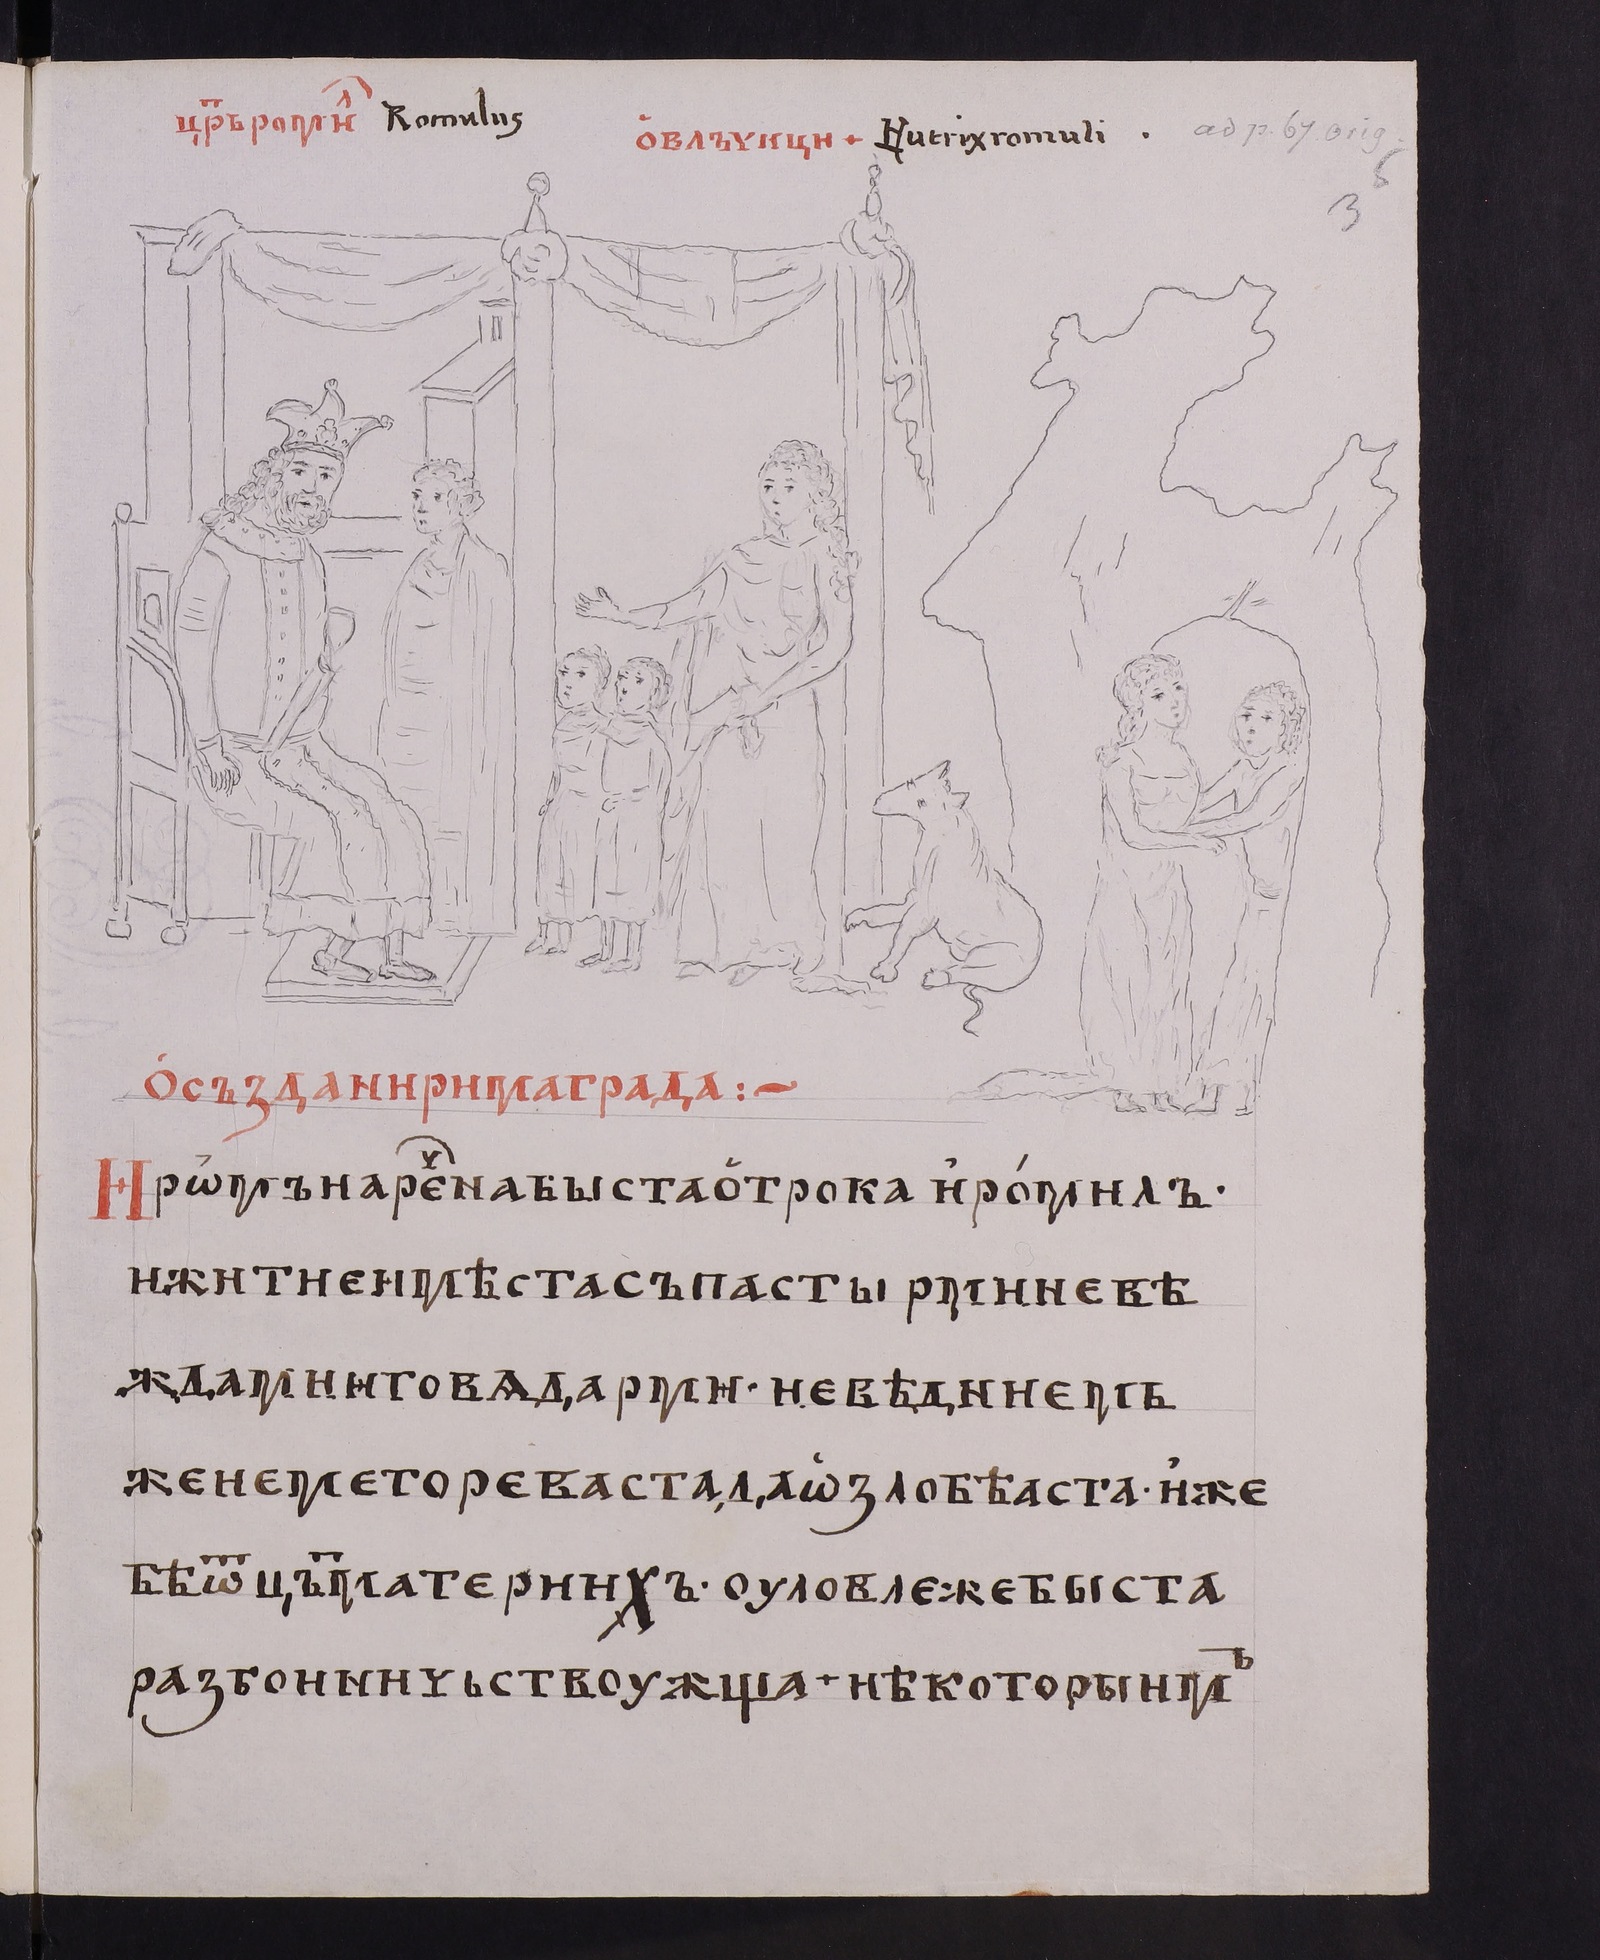 цр҃ьромѝл Romulus
ѻвлъчици + Nutrix romuli .
ad p. 67 orig.
3
ѻсъзданнримаграда:~
Ирѡмънареченабыстаѻтрока ироми лъ·
ижитнеимѣстасъпастырминевѣ
ждамиитовѧдарми· невѣдинемь
женеметореваста,даѡзлобѣаста·иже
бѣѿцъматернихъ· оуловлежебыста
разбоииничьствоужѫща+нѣкоторыимъ